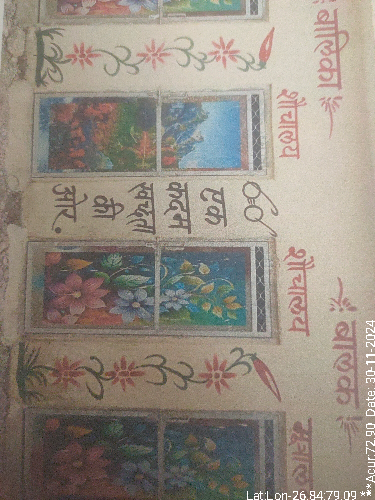 बालिका
बालक
शौचालय
शौचालय
मूत्राल
एक
कदम
स्वच्छता
की
ओर.
Lat:Lon-26.84:79.09 ***Acur:72.90 Date: 30-11-2024